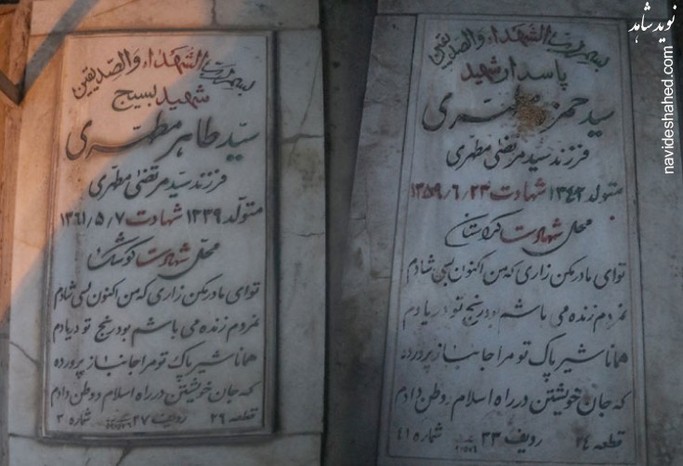 بسم رب الشهداء والصدیقین
پاسدار شهید
سید حمزه مطهری
فرزند سید مرتضی مطهری
متولد ۱۳۴۲ شهادت ۱۳۵۹/۶/۲۳
محل شهادت کردستان
تو ای مادر مکن زاری که من اکنون بسی شادم
نمردم زنده می باشم بود رنج تو در یادم
همانا شیر پاک تو مرا جانباز پرورده
که جان خویشتن در راه اسلام و وطن دادم
قطعه ۲۴ ردیف ۳۳ شماره ۴۱
بسم رب الشهداء والصدیقین
شهید بسیج
سید طاهر مطهری
فرزند سید مرتضی مطهری
متولد ۱۳۳۹ شهادت ۱۳۶۱/۵/۷
محل شهادت کوشک
تو ای مادر مکن زاری که من اکنون بسی شادم
نمردم زنده می باشم بود رنج تو در یادم
همانا شیر پاک تو مرا جانباز پرورده
که جان خویشتن در راه اسلام و وطن دادم
قطعه ۲۶ ردیف ۲۷ شماره ۳
نوید شاهد
navideshahed.com